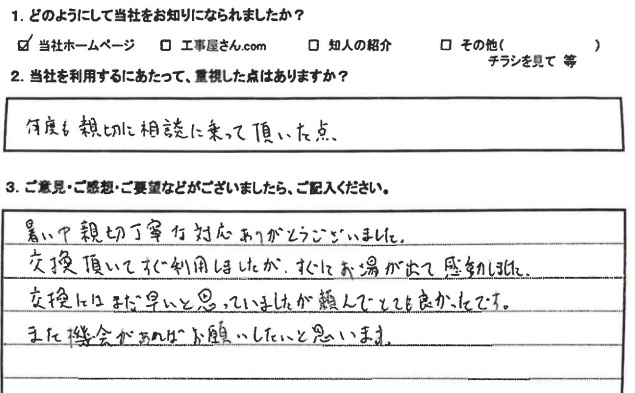 1. どのようにして当社をお知りになられましたか？
☑ 当社ホームページ □ 工事屋さん.com □ 知人の紹介 □ その他( )
チラシを見て 等
2. 当社を利用するにあたって、重視した点はありますか？
何度も親切に相談に乗って頂いた点、
3. ご意見・ご感想・ご要望などがございましたら、ご記入ください。
暑い中親切丁寧な対応ありがとうございました。
交換頂いてすぐ利用しましたが、すぐにお湯が出て感動しました。
交換にはまだ早いと思っていましたが頼んでとても良かったです。
また機会があればお願いしたいと思います。